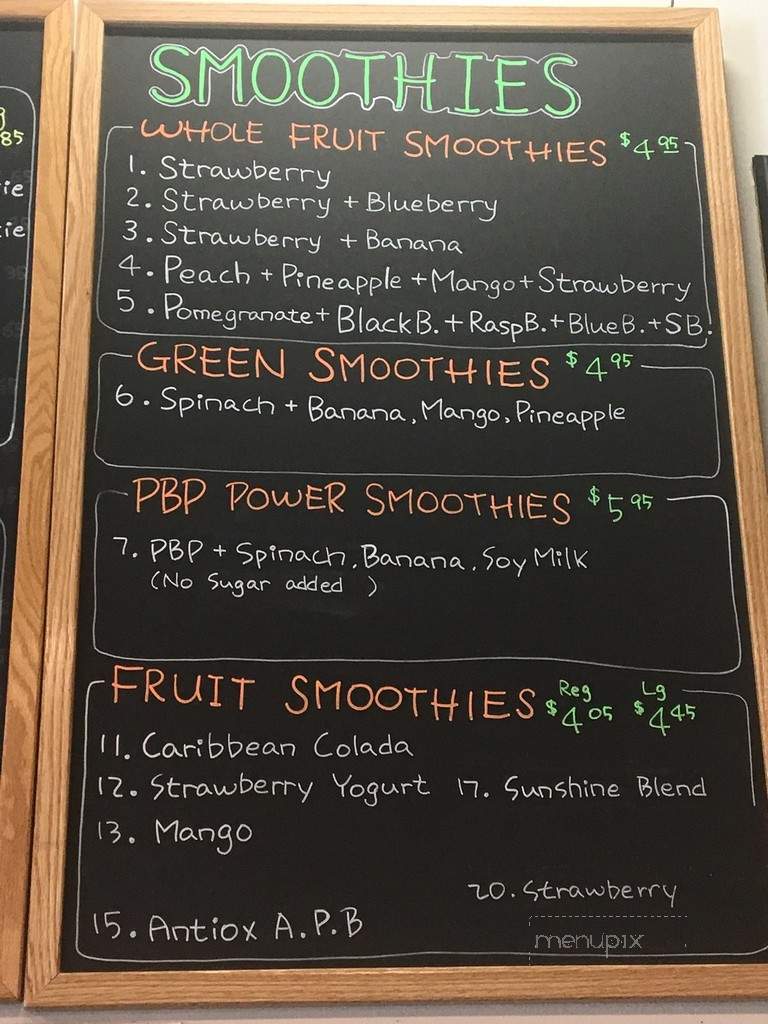 SMOOTHIES
WHOLE FRUIT SMOOTHIES $4.95
1. Strawberry
2. Strawberry + Blueberry
3. Strawberry + Banana
4. Peach + Pineapple + Mango + Strawberry
5. Pomegranate + BlackB. + RaspB. + BlueB. + SB.
GREEN SMOOTHIES $4.95
6. Spinach + Banana, Mango, Pineapple
PBP POWER SMOOTHIES $5.95
7. PBP + Spinach, Banana, Soy Milk
(No Sugar added )
FRUIT SMOOTHIES Reg $4.05 Lg $4.45
11. Caribbean Colada
12. Strawberry Yogurt 17. Sunshine Blend
13. Mango
20. Strawberry
15. Antiox A.P.B
menupix
85
ie
tie